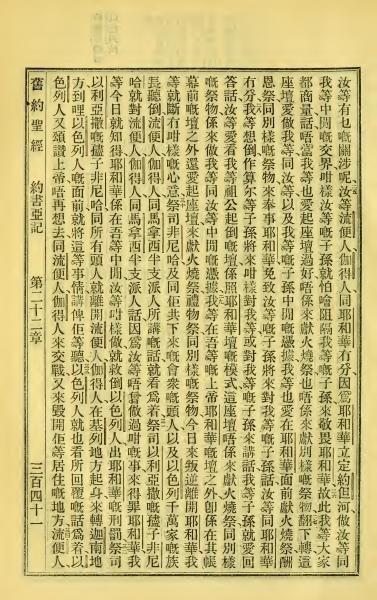 汝等有乜嘅關涉呢、汝等流便人、伽得人、同耶和華冇分、因爲耶和華立定約但河、做汝等同
我等中間嘅交界、咁樣汝等嘅子孫、就怕噲阻隔我等嘅子孫來敬畏耶和華、故此我等大家
都商量話、唔當我等也愛起座壇過好、唔係來獻火燒祭、也唔係來獻別樣嘅祭物、翻下轉這
座壇愛做我等同汝等、以及我等嘅子孫中間嘅憑據、我等也愛在耶和華面前獻火燒祭、酬
恩祭、同別樣嘅祭物、來奉事耶和華、免致汝等嘅子孫將來對我等嘅子孫話、汝等同耶和華
冇分、我等想倒、作算尔等子孫將來咁樣對我等、或對我等嘅子孫來講話、我等子孫就愛回
答話、汝等愛看我等祖公起倒嘅壇、係照耶和華壇嘅模式、這座壇唔係來獻火燒祭、同別樣
嘅祭物、係來做我等同汝等中間嘅憑據、我等在吾等嘅上帝耶和華嘅壇之外、卽係在其帳
幕前嘅壇之外、還愛起座壇來獻火燒祭、禮物祭、同別樣嘅祭物、今日來叛逆離開耶和華、我
等就斷冇咁樣嘅心意、祭司非尼哈、及同佢共下來嘅會衆嘅頭人、以及以色列千萬家嘅族
長、聽倒流便人、伽得人、同馬拿西半支派人所講嘅話、就看爲着、祭司以利亞撒嘅孻子非尼
哈就對流便人、伽得人、同馬拿西半支派人話、因爲汝等唔曾做過咁嘅事來得罪耶和華、我
等今日就知得耶和華係在吾等中間、汝等咁樣做、就救倒以色列人出耶和華嘅刑罰、祭司
以利亞撒嘅孻子非尼哈、同所有頭人、就離開流便人、伽得人、在基列地方起身、來轉迦南地
方、到哩以色列人嘅面前、就將這等事情講俾佢等聽、以色列人就也看所回覆嘅話爲着、以
色列人又頌讚上帝、唔再想去同流便人、伽得人來交戰、又來毀開佢等居住嘅地方、流便人、
舊約聖經 約書亞記 第二十二章 三百四十一